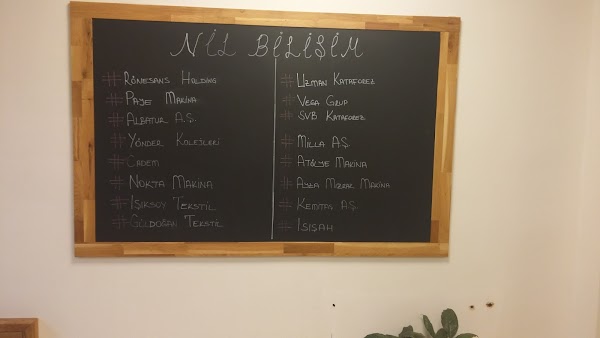 NİL BİLİŞİM
# RÖNESANS HOLDİNG
# PAJE MAKİNA
# ALBATUR A.Ş.
# YÖNDER KOLEJLERİ
# CADEM
# NOKTA MAKİNA
# IŞIKSOY TEKSTİL
# GÜLDOĞAN TEKSTİL
# UZMAN KATAFOREZ
# VEGA GRUP
# SVB KATAFOREZ
# MİLLA AŞ.
# ATÖLYE MAKİNA
# MAKİNA
# AŞ.
# ISISAH